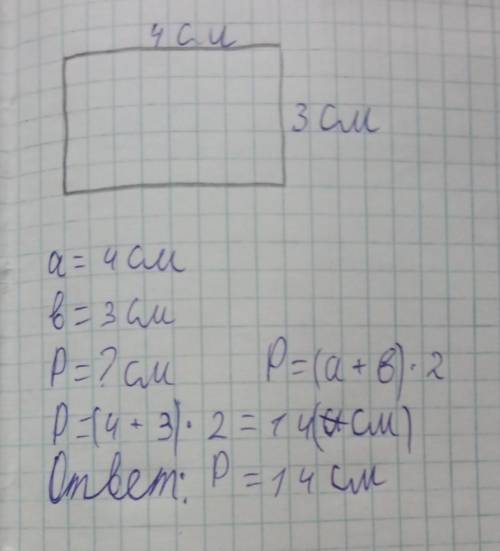 4 см
3 см
a = 4 см
в = 3 см
P = ? см P = (a + в) · 2
P = (4 + 3) · 2 = 14 (см)
Ответ: P = 14 см